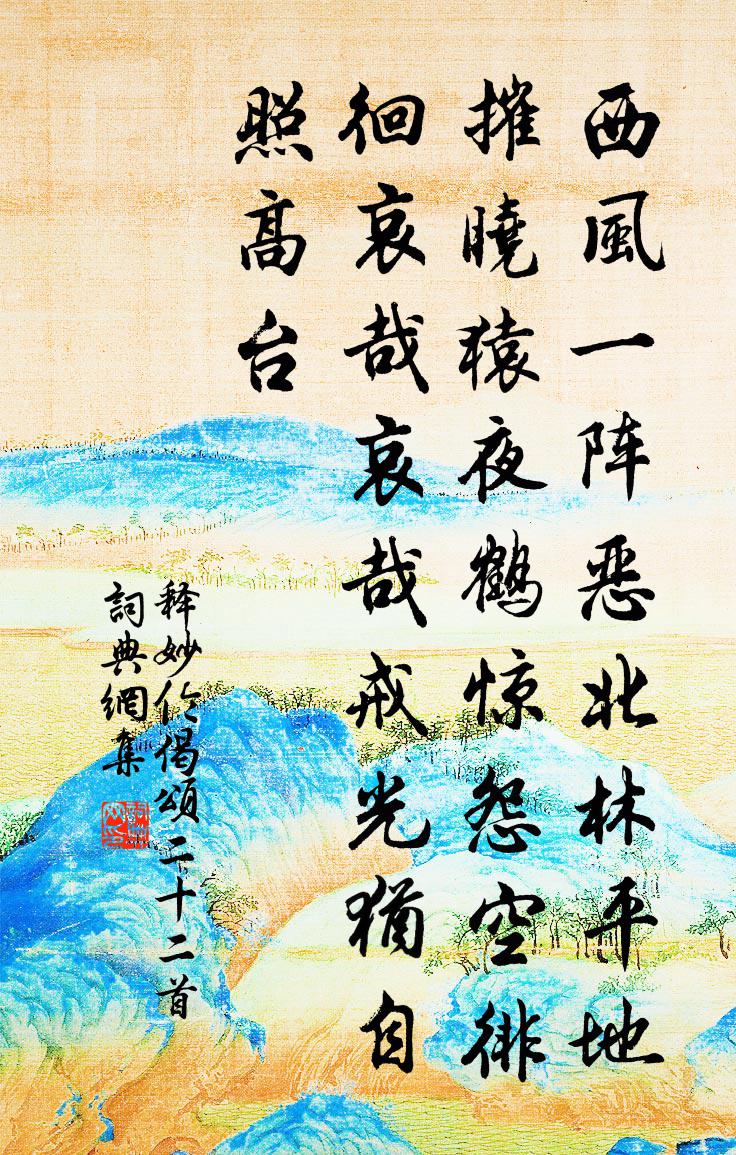 西風一阵恶北林平地
摧曉猿夜鶴惊怨空徘
徊哀哉哀哉戒光猶自
照高台
释妙伦偈頌二十二首
詞典網集